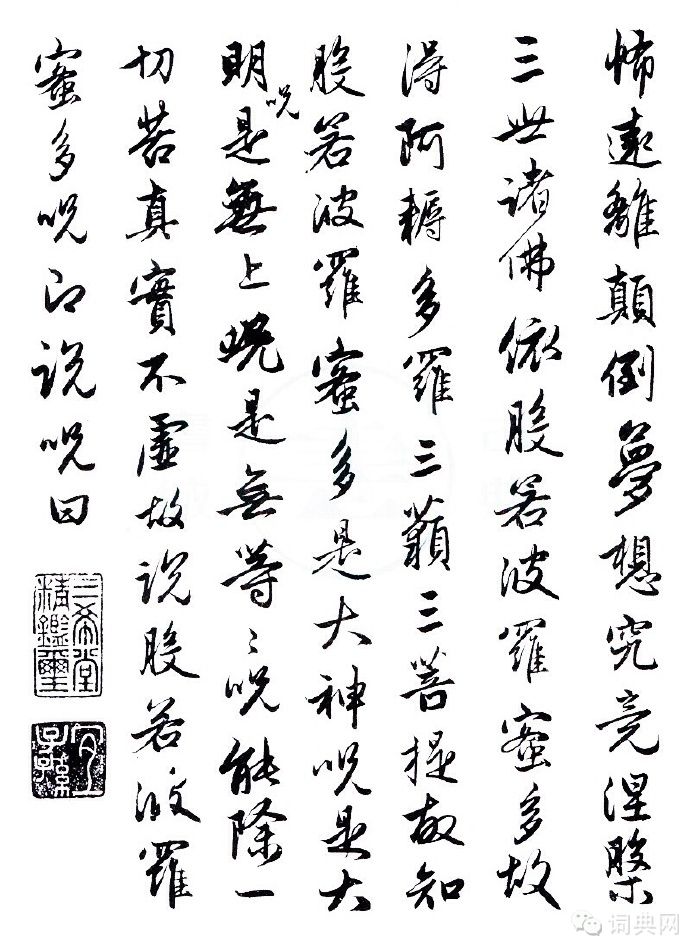 怖遠離顛倒夢想究竟涅槃
三世諸佛依般若波羅蜜多故
得阿耨多羅三藐三菩提故知
般若波羅蜜多是大神呪是大
明呪是無上呪是無等〻呪能除一
切苦真實不虛故說般若波羅
蜜多呪即說呪曰
三希堂
精鑑璽
宜
子孫
词典网